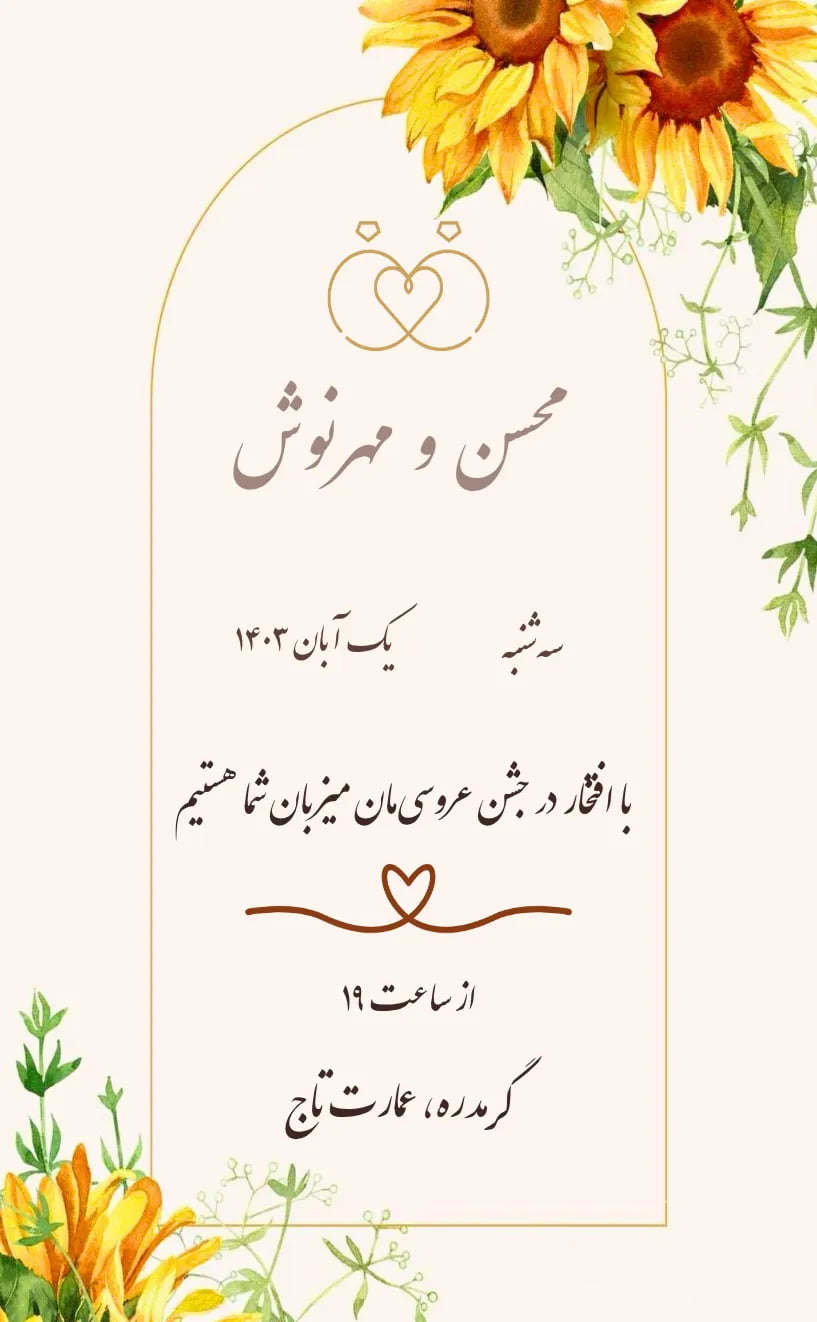 محسن و مهرنوش
سه‌شنبه یک آبان ۱۴۰۳
با افتخار در جشن عروسی‌مان میزبان شما هستیم
از ساعت ۱۹
گرمدره، عمارت تاج